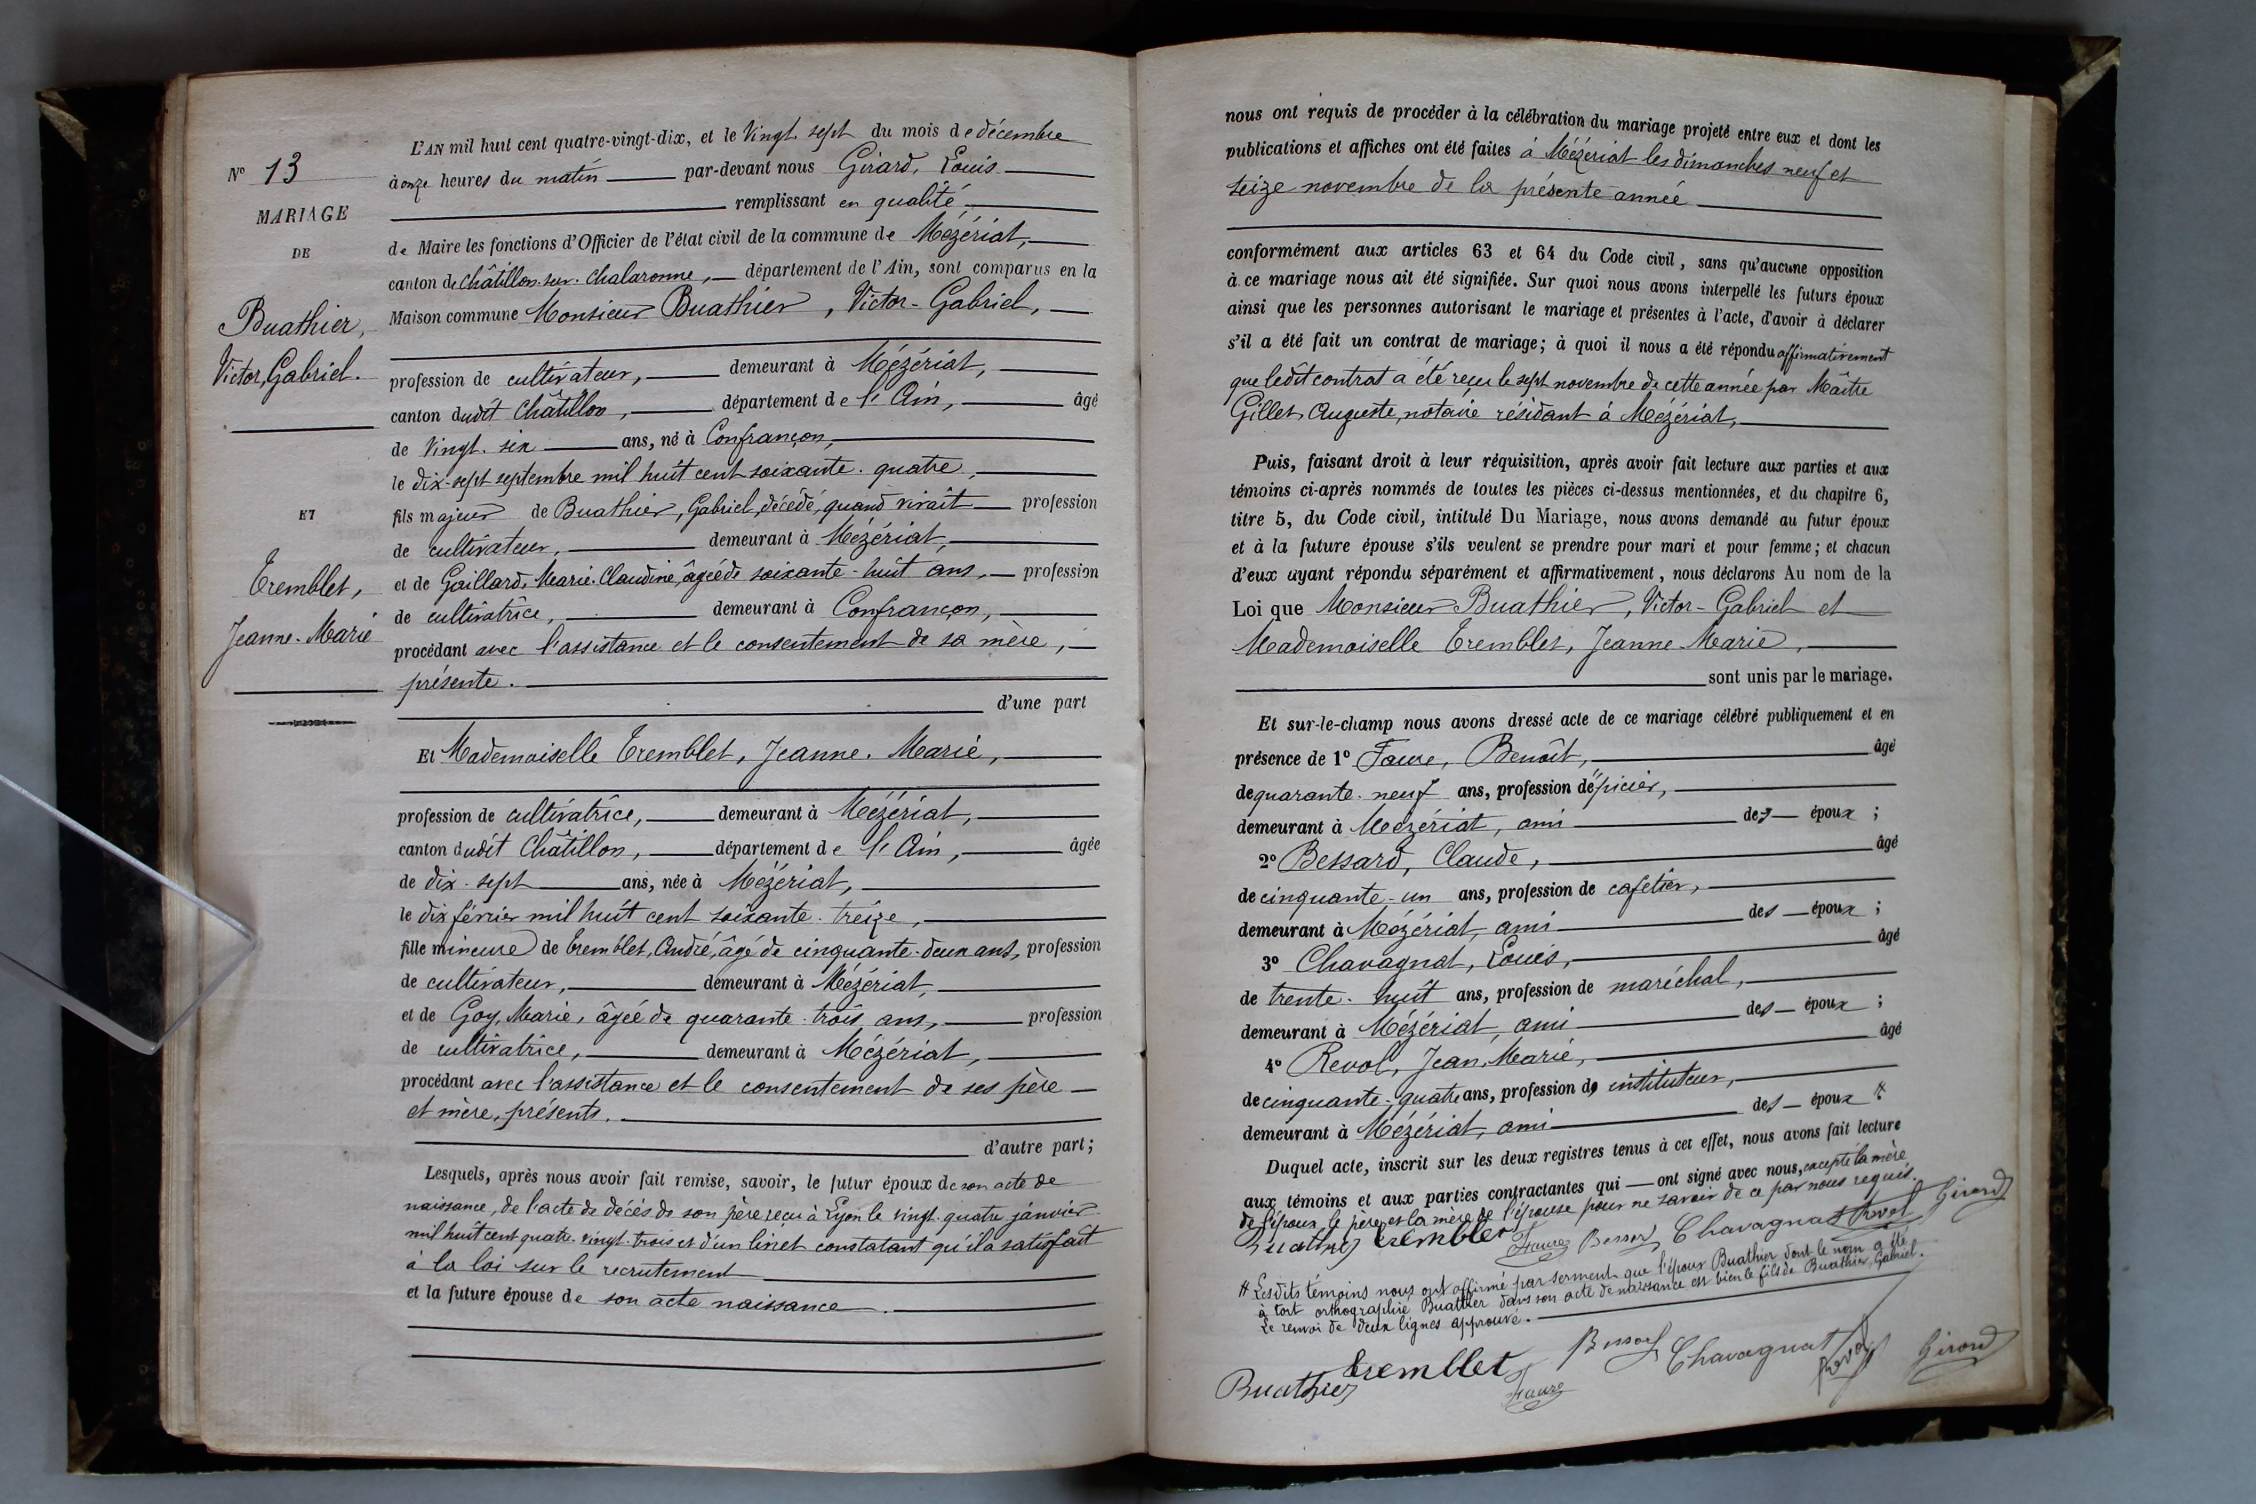 N° 13
MARIAGE
DE
Buathier,
Victor, Gabriel.
ET
Tremblet,
Jeanne-Marie
L'AN mil huit cent quatre-vingt-dix, et le Vingt sept du mois de décembre
à onze heures du matin par-devant nous Girard, Louis
remplissant en qualité
de Maire les fonctions d'Officier de l'état civil de la commune de Mézériat,
canton de Châtillon-sur-Chalaronne, département de l'Ain, sont comparus en la
Maison commune Monsieur Buathier, Victor-Gabriel,
profession de cultivateur, demeurant à Mézériat,
canton dudit Châtillon, département de l'Ain, âgé
de Vingt-six ans, né à Confrançon,
le dix-sept septembre mil huit cent soixante-quatre,
fils majeur de Buathier, Gabriel, décédé, quand vivait profession
de cultivateur, demeurant à Mézériat,
et de Gaillard, Marie-Claudine, âgée de soixante-huit ans, profession
de cultivatrice, demeurant à Confrançon,
procédant avec l'assistance et le consentement de sa mère,
présente.
d'une part
Et Mademoiselle Tremblet, Jeanne-Marie,
profession de cultivatrice, demeurant à Mézériat,
canton dudit Châtillon, département de l'Ain, âgée
de dix-sept ans, née à Mézériat,
le dix février mil huit cent soixante-treize,
fille mineure de Tremblet, André, âgé de cinquante-deux ans, profession
de cultivateur, demeurant à Mézériat,
et de Goy, Marie, âgée de quarante-trois ans, profession
de cultivatrice, demeurant à Mézériat,
procédant avec l'assistance et le consentement de ses père
et mère, présents.
d'autre part;
Lesquels, après nous avoir fait remise, savoir, le futur époux de son acte de
naissance, de l'acte de décès de son père reçu à Lyon le vingt-quatre janvier
mil huit cent quatre-vingt-trois et d'un livret constatant qu'il a satisfait
à la loi sur le recrutement
et la future épouse de son acte naissance.
nous ont requis de procéder à la célébration du mariage projeté entre eux et dont les
publications et affiches ont été faites à Mézériat les dimanches neuf et
seize novembre de la présente année
conformément aux articles 63 et 64 du Code civil, sans qu'aucune opposition
à ce mariage nous ait été signifiée. Sur quoi nous avons interpellé les futurs époux
ainsi que les personnes autorisant le mariage et présentes à l'acte, d'avoir à déclarer
s'il a été fait un contrat de mariage; à quoi il nous a été répondu affirmativement
que ledit contrat a été reçu le sept novembre de cette année par Maître
Gillet, Auguste, notaire résidant à Mézériat,
Puis, faisant droit à leur réquisition, après avoir fait lecture aux parties et aux
témoins ci-après nommés de toutes les pièces ci-dessus mentionnées, et du chapitre 6,
titre 5, du Code civil, intitulé Du Mariage, nous avons demandé au futur époux
et à la future épouse s'ils veulent se prendre pour mari et pour femme; et chacun
d'eux ayant répondu séparément et affirmativement, nous déclarons Au nom de la
Loi que Monsieur Buathier, Victor-Gabriel et
Mademoiselle Tremblet, Jeanne-Marie,
sont unis par le mariage.
Et sur-le-champ nous avons dressé acte de ce mariage célébré publiquement et en
présence de 1° Faure, Benoît, âgé
de quarante-neuf ans, profession d'épicier,
demeurant à Mézériat, ami des époux;
2° Bessard, Claude, âgé
de cinquante-un ans, profession de cafetier,
demeurant à Mézériat, ami des époux;
3° Chavagnat, Louis, âgé
de trente-huit ans, profession de maréchal,
demeurant à Mézériat, ami des époux;
4° Revol, Jean, Marie, âgé
de cinquante-quatre ans, profession d' instituteur,
demeurant à Mézériat, ami des époux #
Duquel acte, inscrit sur les deux registres tenus à cet effet, nous avons fait lecture
aux témoins et aux parties contractantes qui ont signé avec nous, excepté la mère
de l'époux, le père et la mère de l'épouse pour ne savoir de ce par nous requis.
Buathier Tremblet Faure Bessard Chavagnat Revol Girard
# Lesdits témoins nous ont affirmé par serment que l'époux Buathier dont le nom a été
à tort orthographié Buatthier dans son acte de naissance est bien le fils de Buathier, Gabriel.
Le renvoi de deux lignes approuvé.
Buathier Tremblet Faure Bessard Chavagnat Revol Girard